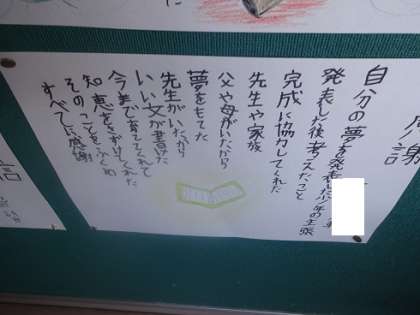 感謝
自分の夢を発表した少年の主張
発表した後考えたこと
完成に協力してくれた
先生や家族
父や母がいたから
夢をもてた
先生がいたから
いい文が書けた
今まで育ててくれて
知恵をさずけてくれた
そのことをふくめ
すべてに感謝
信